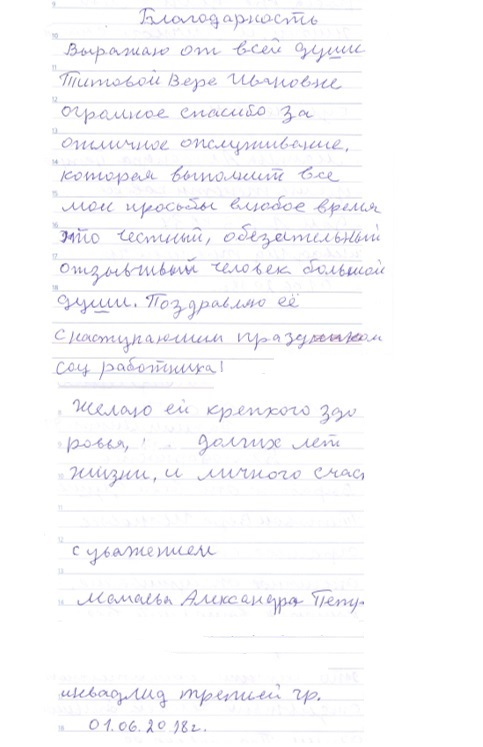 Благодарность
Выражаю от всей души
Титовой Вере Ивановне
огромное спасибо за
отличное опслуживание,
которая выполнит все
мои просьбы влюбое время
это честный, обезательный
отзывчивый человек большой
души. Поздравляю её
с наступающим праздником
соц работника!
Желаю ей крепкого здо
ровья, долгих лет
жизни, и личного счас
с уважением
Александра
инвадлид третией гр.
01.06.2018г.